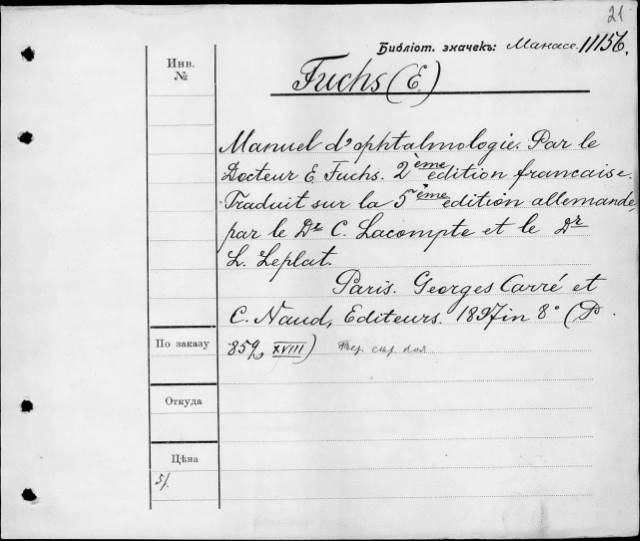 21
Библіот. значекъ: Манасе. 11156.
Инв.
№
Fuchs (E.)
Manuel d'ophtalmologie. Par le
Docteur E. Fuchs. 2ème edition francaise.
Traduit sur la 5ème edition allemande,
par le Dr C. Lacompte et le Dr
L. Leplat.
Paris. Georges Carré et
C. Naud, Editeurs. 1897 in 8° (P.
По заказу
859, XVIII)
Откуда
Цѣна
5/.